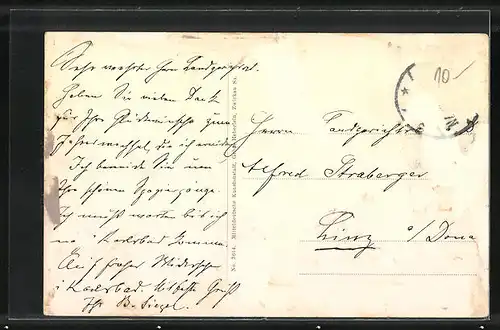 Sehr werter Herr Landgerichtsr.
Haben Sie vielen Dank
für Ihre Glückwünsche zum
Jahreswechsel, die ich erwidere
Ich beneide Sie um
Ihre schönen
Ich muß warten bis ich
nach Karlsbad komme.
Auf frohes Wiedersehen
in Karlsbad. Gruß
Ihr B. Siegel.
No. 3014. Mitteldeutsche Kunstanstalt, Heberlein, Zwickau Sa.
10-
Herrn Landgerichtsr
Alfred Straberger
Linz a/Donau